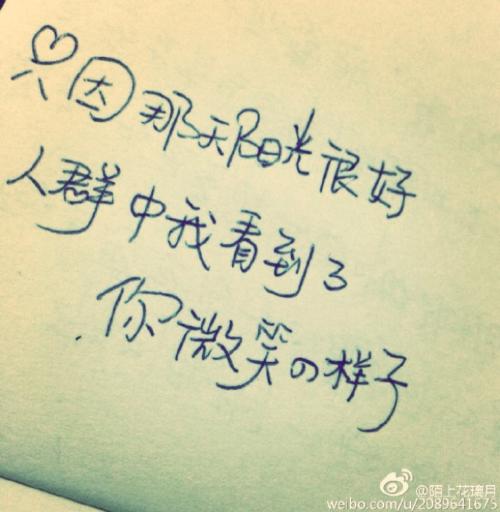 只因那天阳光很好
人群中我看到了
你微笑の样子
@陌上花璃月
weibo.com/u/2089641675